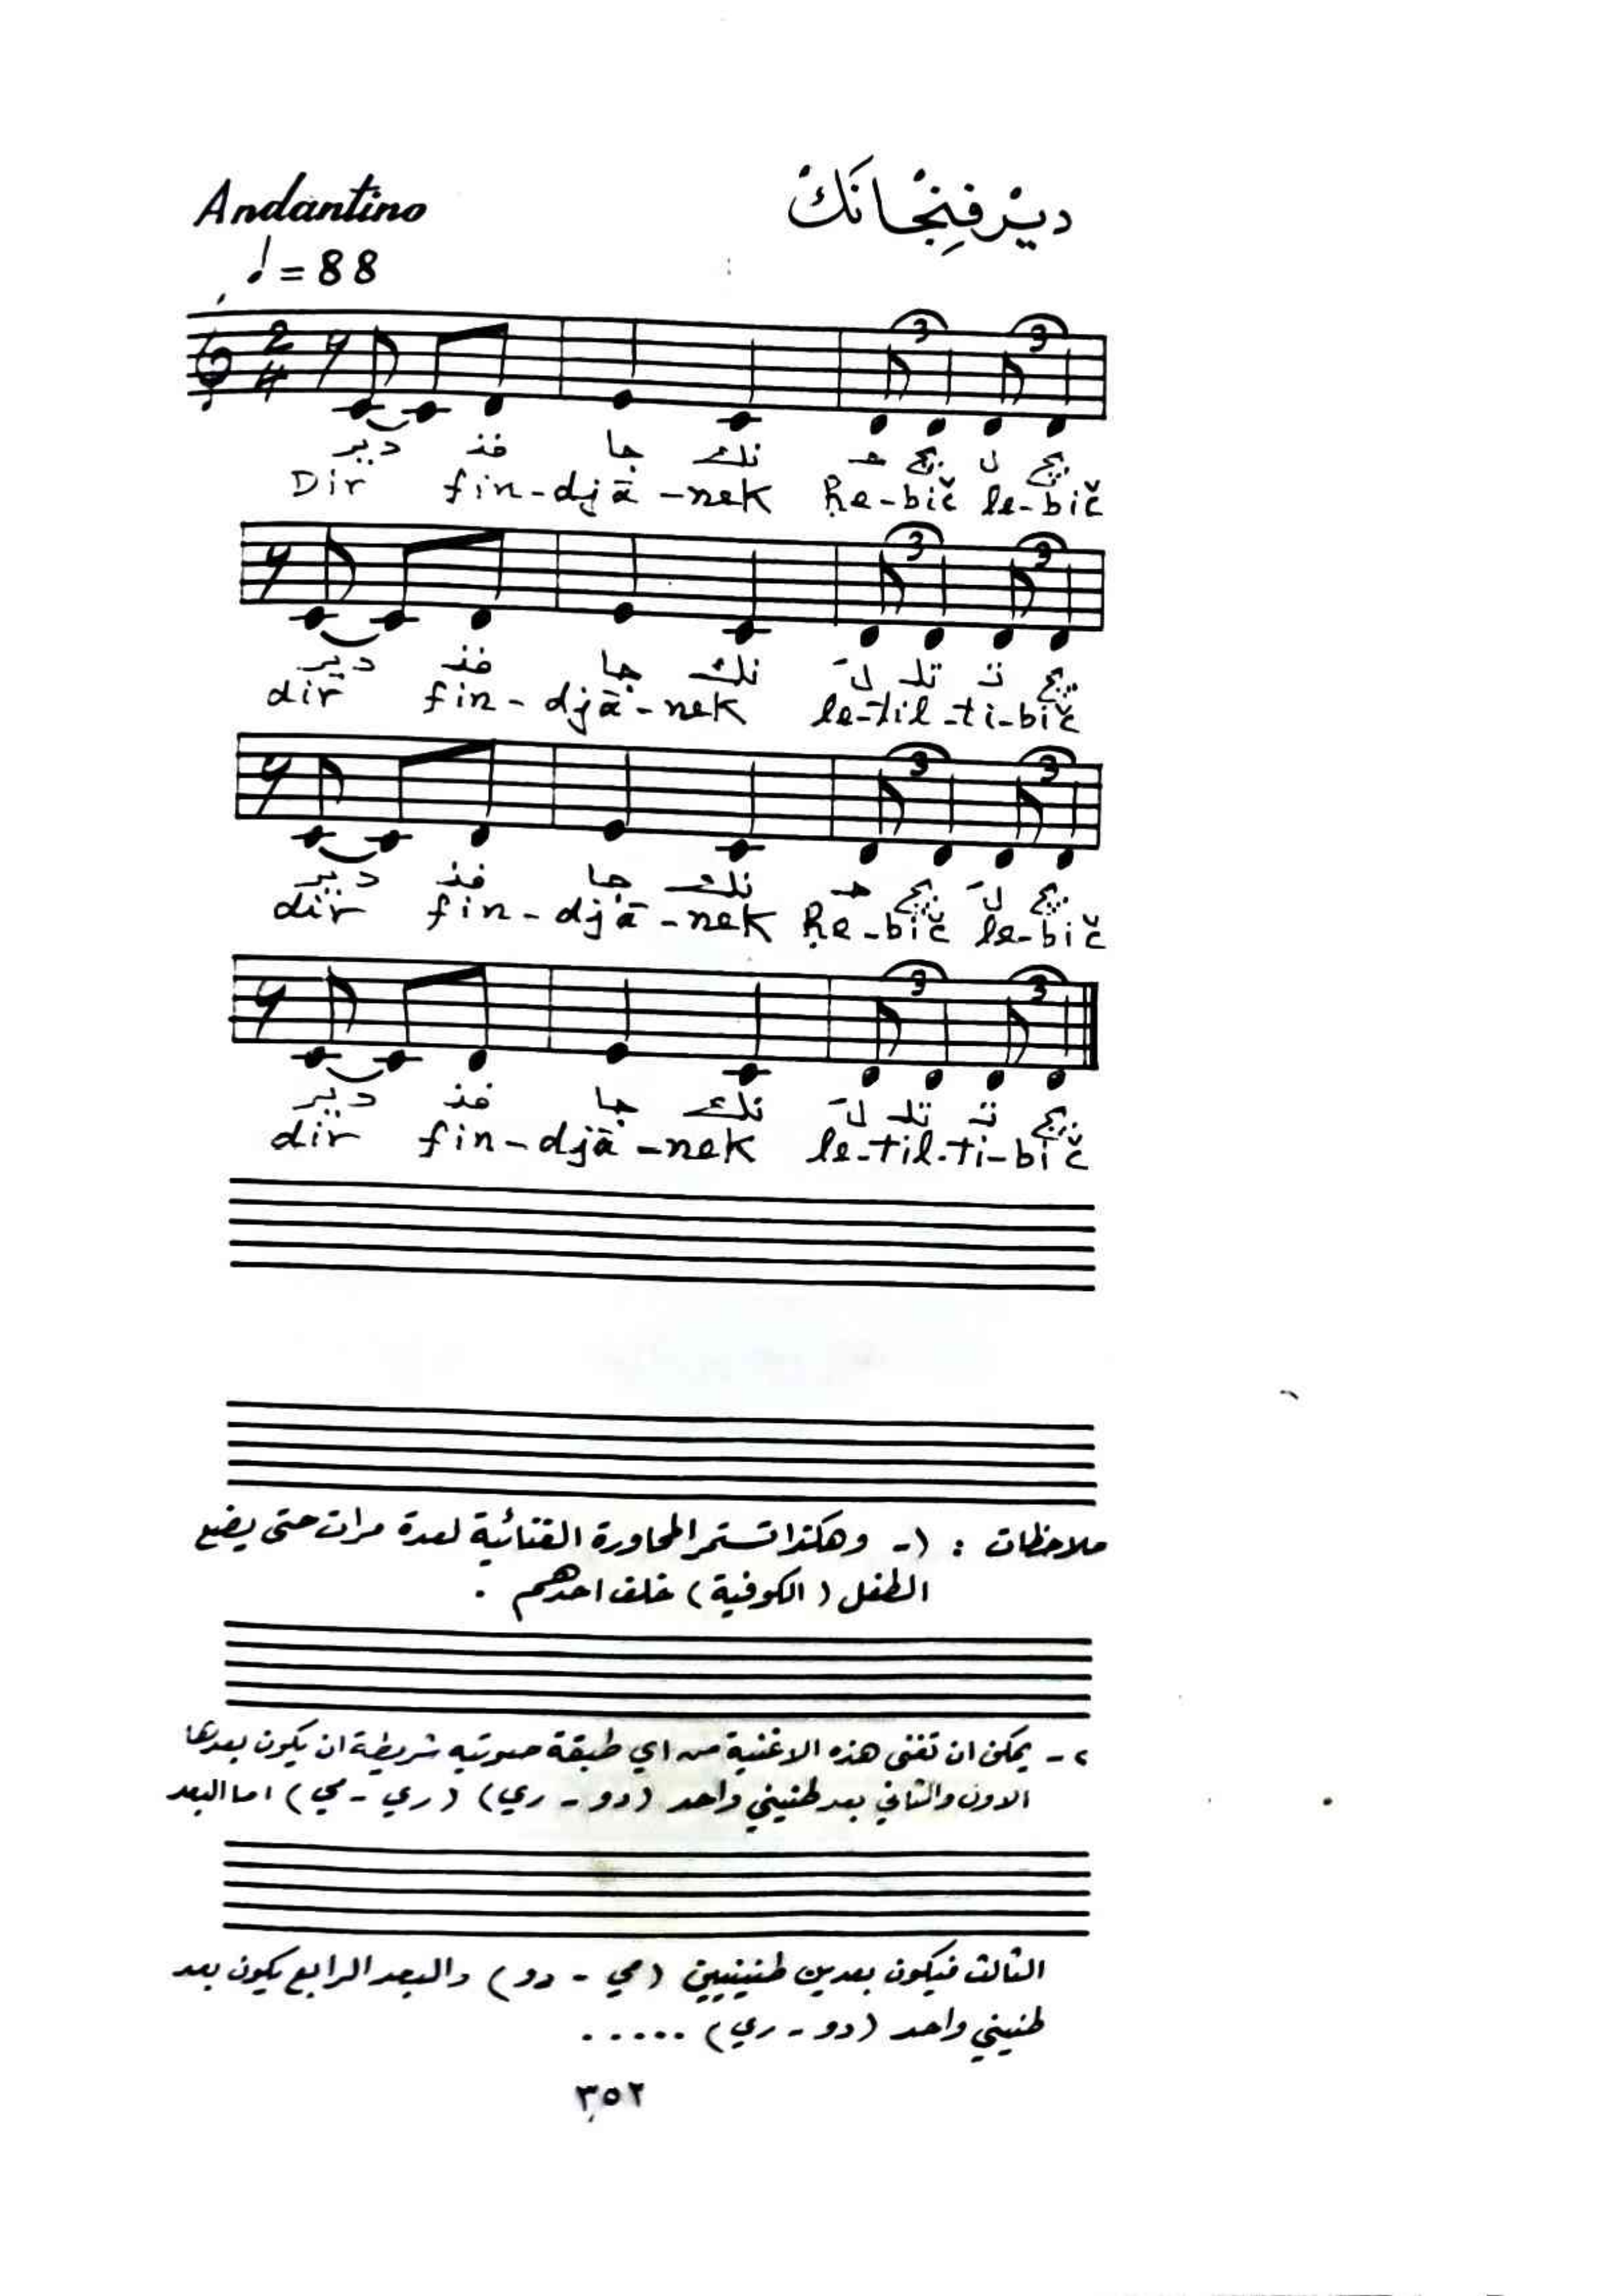 Andantino
دير فِنْجَانَكْ
♩ = 88
3 3
2/4
دير فنـ جا نك حـ بيچ لـ بيچ
Dir fin-djā-nek Ḥe-bič le-bič
3 3
دير فنـ جا نك لَ تلـ تـ بيچ
dir fin-djā-nek le-til-ti-bič
3 3
دير فنـ جا نك حـ بيچ لَ بيچ
dir fin-djā-nek Ḥe-bič le-bič
3 3
دير فنـ جا نك لَ تلـ تـ بيچ
dir fin-djā-nek le-til-ti-bič
ملاحظات : ١- وهكذا تستمر المحاورة الغنائية لعدة مرات حتى يضع
الطفل (الكوفية) خلف احدهم .
٢- يمكن ان تغنى هذه الاغنية من اي طبقة صوتيه شريطة ان يكون بعدها
الاول والثاني بعد طنيني واحد (دو - ري) (ري - مي) اما البعد
الثالث فيكون بعدين طنينيين (مي - دو) والبعد الرابع يكون بعد
طنيني واحد (دو - ري) .....
٣٥٢